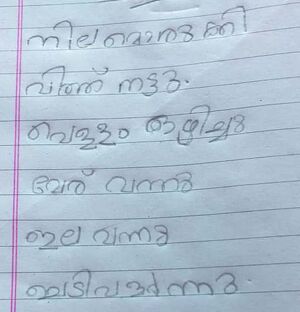 നിലമൊരുക്കി
വിത്ത് നട്ടു.
വെള്ളം ഒഴിച്ചു
വേര് വന്നു
ഇല വന്നു
ചെടിവളർന്നു.